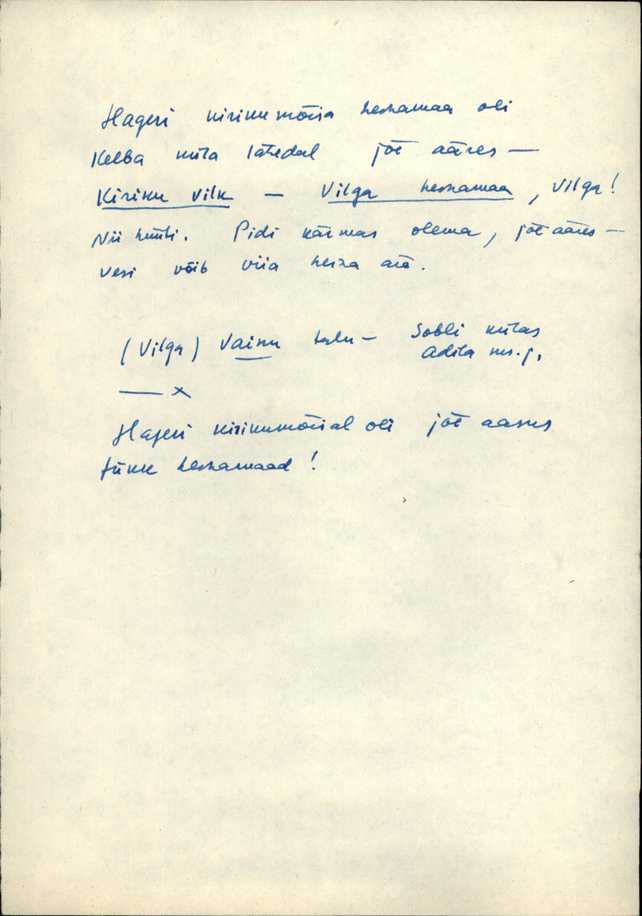 Hageri kirikumõisa heinamaa oli
Kelba küla lähedal jõe ääres —
Kiriku vilk — Vilga heinamaa, Vilga!
Nii hüüti. Pidi kärmas olema, jõe ääres —
vesi võib viia heina ära.
(Vilga) Vainu talu — Sobli külas
Adila
— x
Hageri kirikumõisal oli jõe aasus
tükk heinamaad!